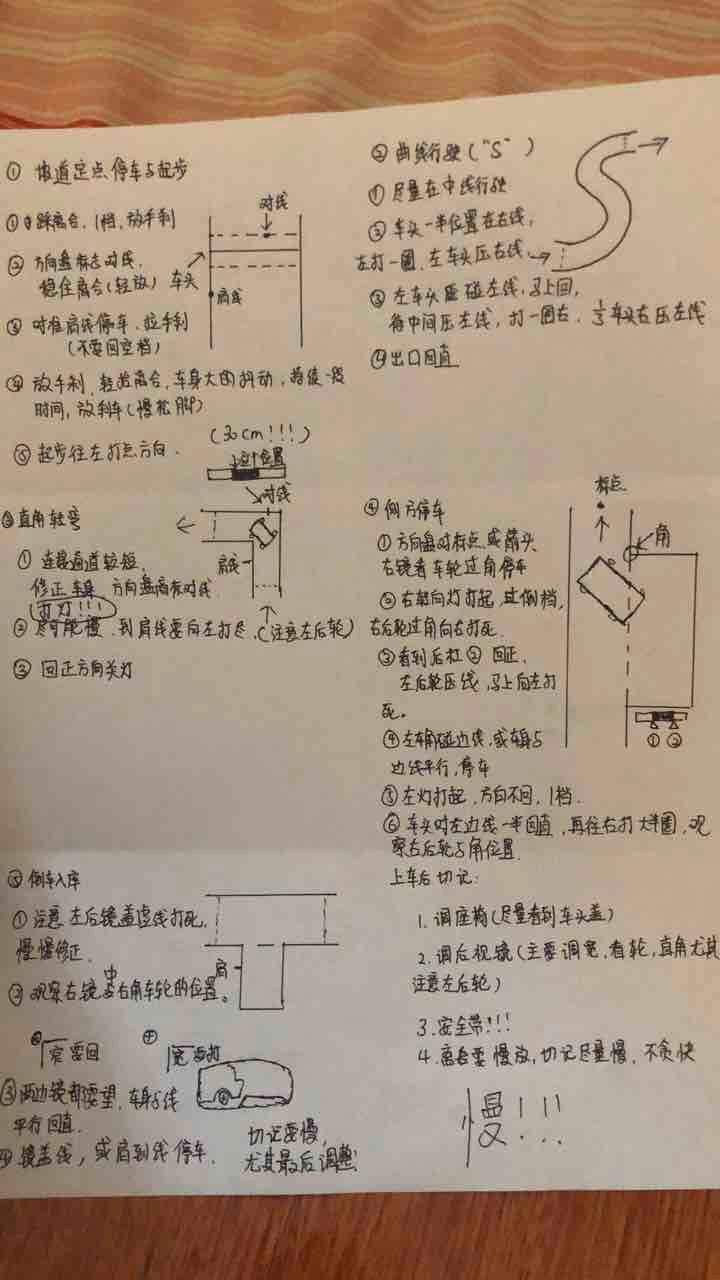 ① 坡道定点停车与起步
① 踩离合，1档，放手刹
② 方向盘标志对线，
稳住离合（轻放）
③ 对准肩线停车，拉手刹
（不要回空档）
④ 放手刹，轻抬离合，车身大的抖动，持续一段
时间，放刹车（慢松脚）
⑤ 起步往左打点方向.
(30cm!!!)
对线
车头
肩线
② 曲线行驶（"S"）
① 尽量在中线行驶
② 车头一半位置在右线，
左打一圈，左车头压右线，
③ 左车头碰左线，马上回，
待中间压左线，打一圈右，1/3车头右压左线
④ 出口回直
③ 直角转弯
① 连接通道较短，
修正车身 方向盘离标对线
（打灯!!!）
② 尽可能慢，到肩线要向左打尽，（注意左后轮）
③ 回正方向关灯
位置
对线
肩线
④ 侧方停车
① 方向盘对标点，或箭头
右镜看车轮过角停车
② 右转向灯打起，过倒档，
右后轮过角向右打死.
③ 看到后杠② 回正，
左后轮压线，马上向左打
死。
④ 左车角碰边线，或车身与
边线平行，停车
⑤ 左灯打起，方向不回，1档.
⑥ 车头对左边线一半回直，再往右打大半圈，观
察右后轮与角位置.
标点
角
① ②
⑤ 倒车入库
① 注意左后镜盖虚线打死，
慢慢修正.
② 观察右镜中右角车轮的位置。
肩
宽要回
宽要打
③ 两边镜都要望，车身与线
平行回直.
④ 镜盖线，或肩到线停车.
切记要慢，
尤其最后调整
上车后切记：
1. 调座椅（尽量看到车头盖）
2. 调后视镜（主要调宽，看轮，直角尤其
注意左后轮）
3. 安全带!!!
4. 离合要慢放，切记尽量慢，不贪快
慢!!!